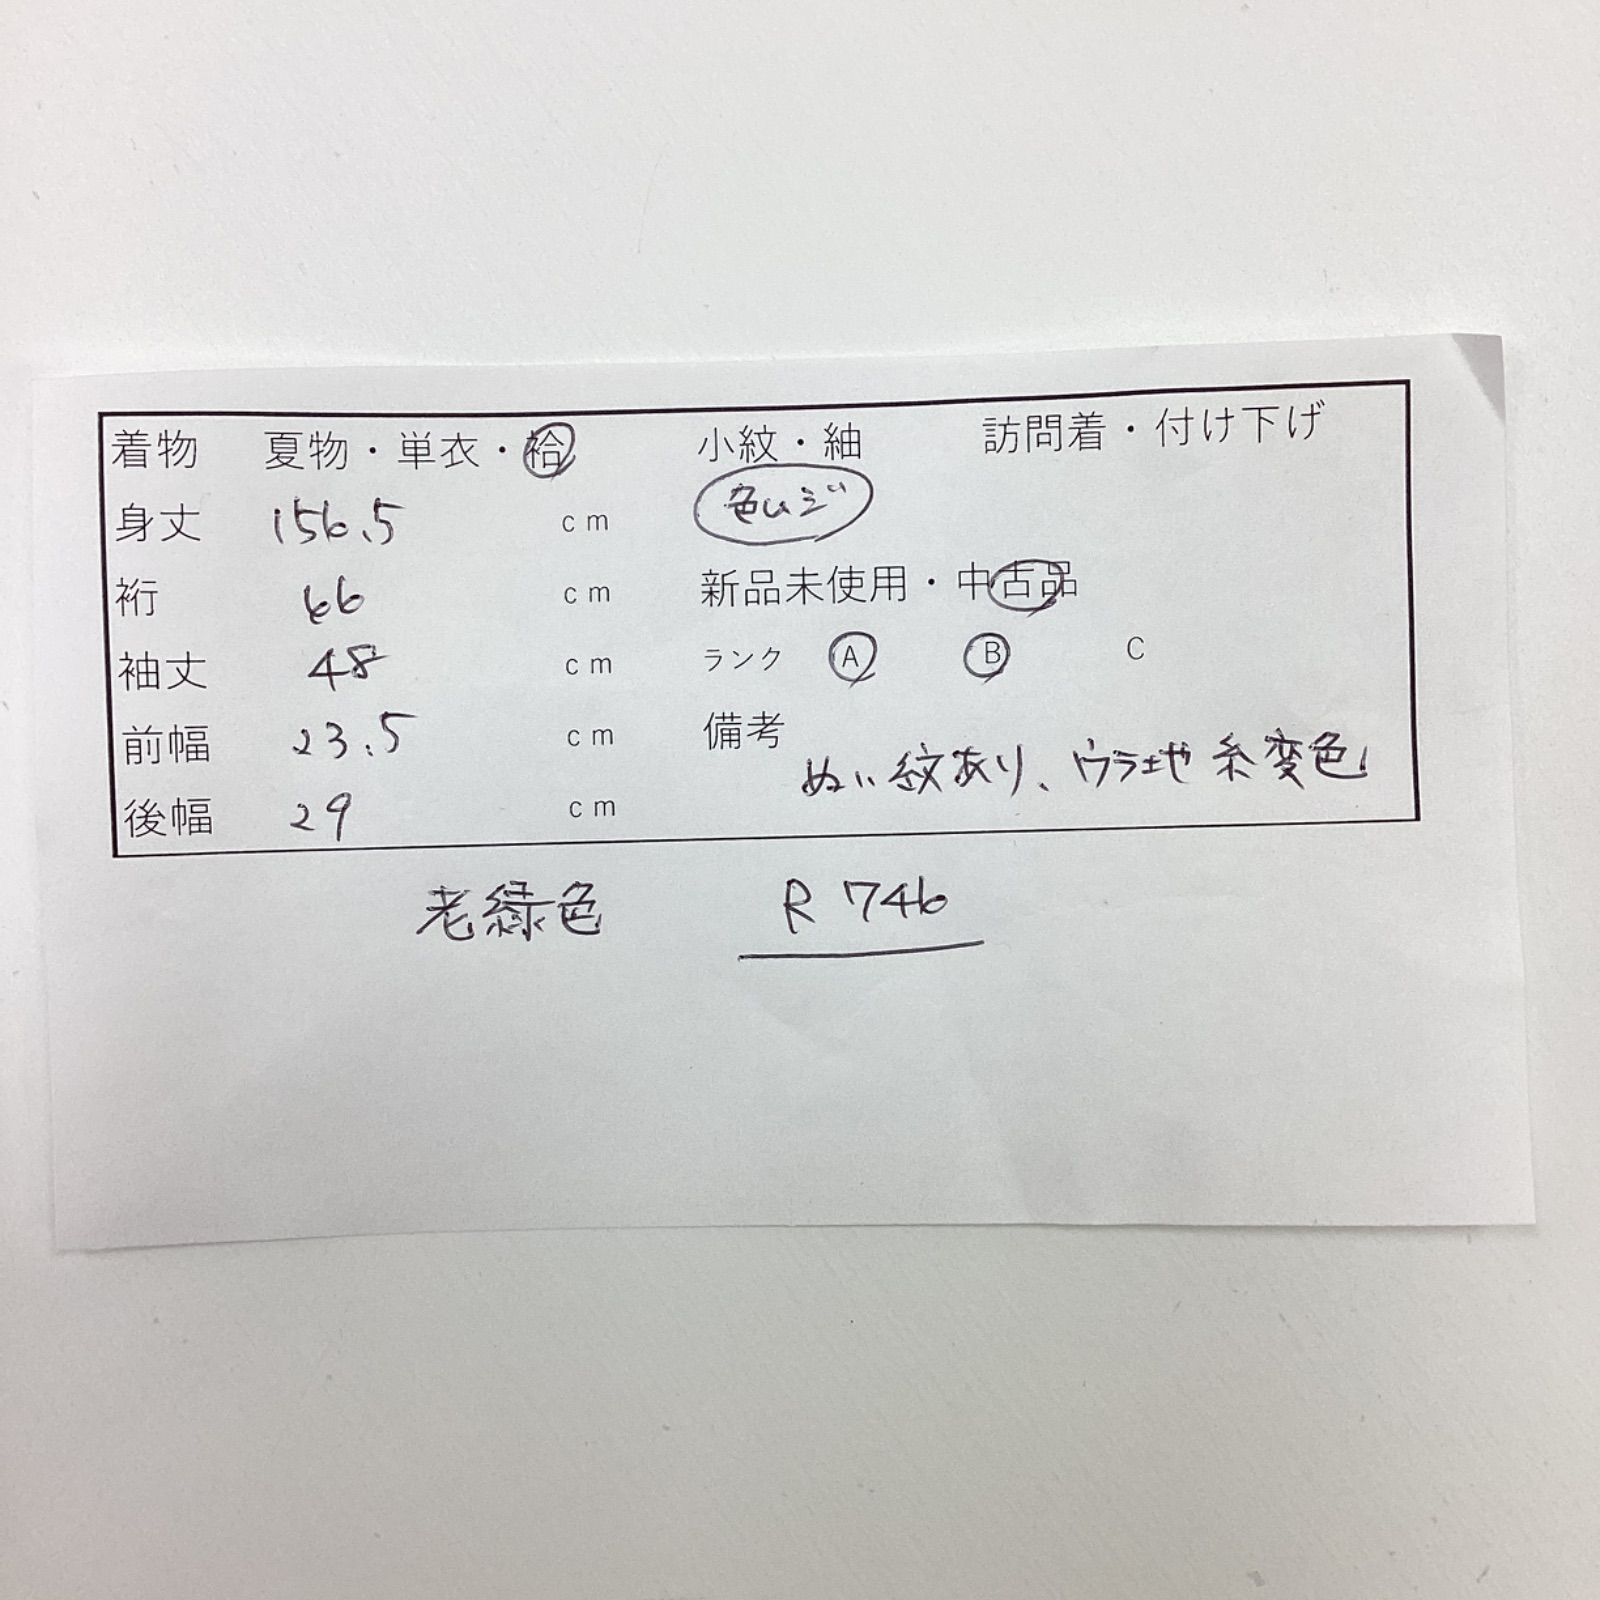 着物 夏物・単衣・袷 小紋・紬 訪問着・付け下げ
身丈 156.5 cm 色ムジ
裄 66 cm 新品未使用・中古品
袖丈 48 cm ランク A B C
前幅 23.5 cm 備考
ぬい紋あり、ウラ地や糸変色
後幅 29 cm
老緑色 R 746